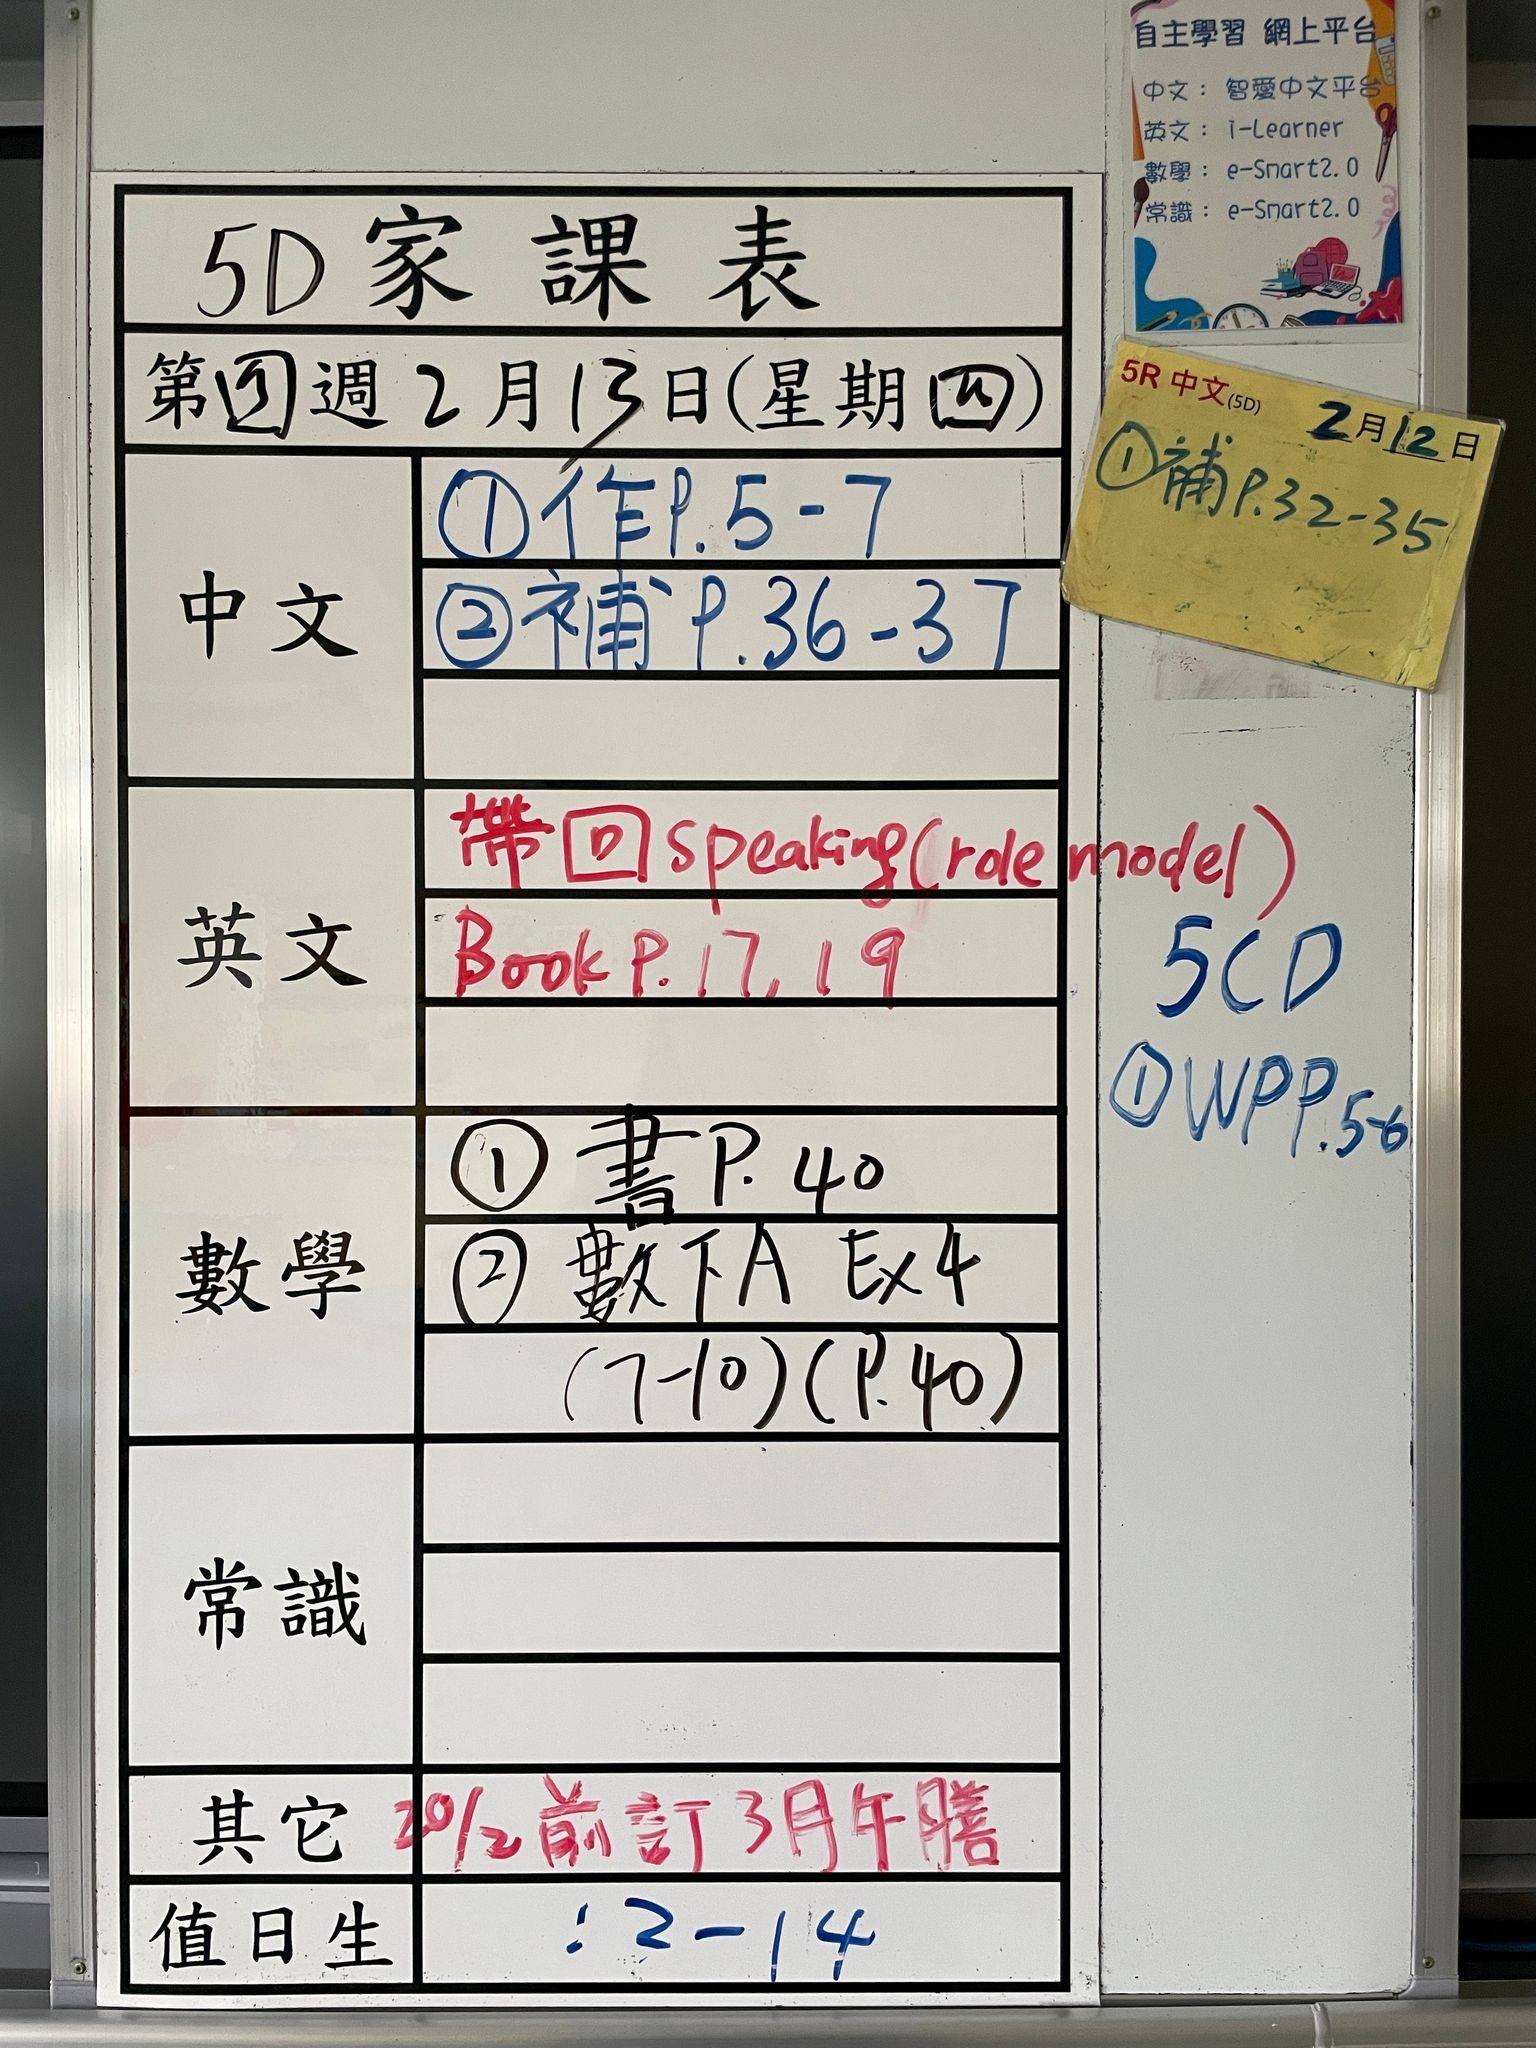 自主學習 網上平台
中文： 智愛中文平台
英文： i-Learner
數學： e-Smart2.0
常識： e-Smart2.0
5D 家課表
第 週 2月13日(星期四)
中文
①作P.5-7
②補P.36-37
5R 中文(5D)
2月12日
①補P.32-35
英文
帶回speaking(role model)
Book P.17, 19
5CD
①WPP.5-6
數學
①書P.40
②數下A Ex4
(7-10)(P.40)
常識
其它 20/2前訂3月午膳
值日生 :2-14